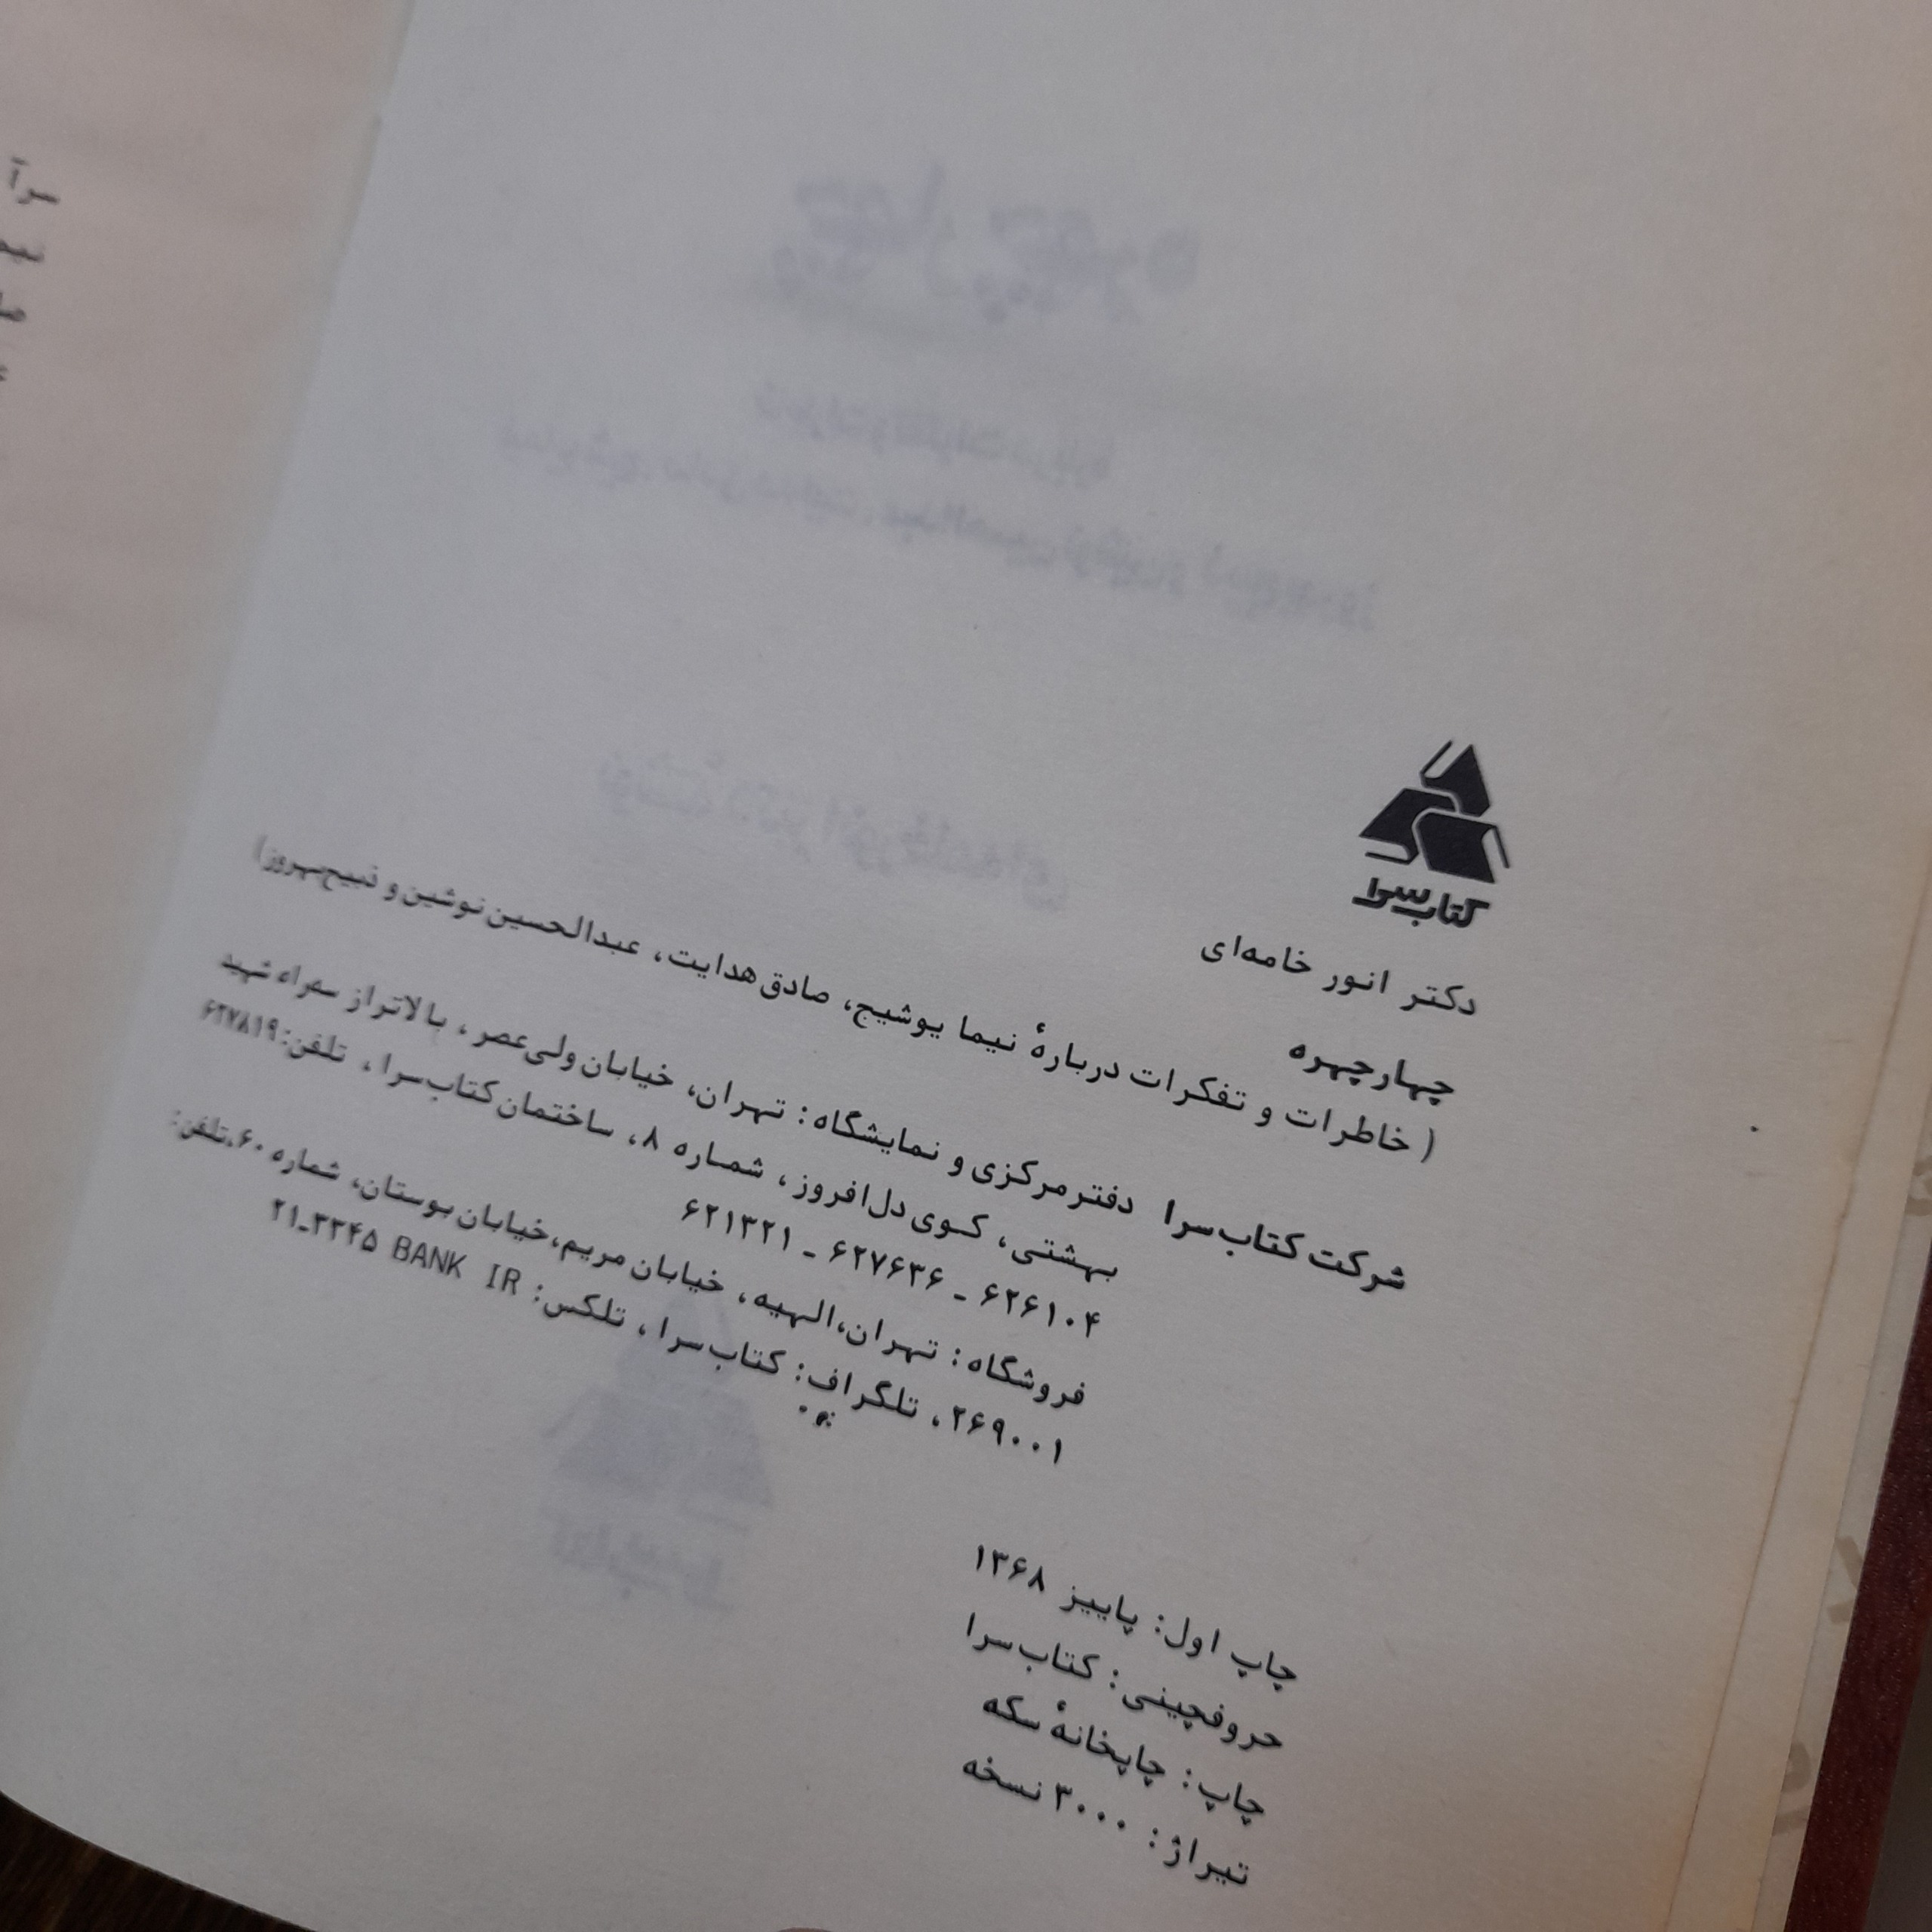 کتاب‌سرا
دکتر انور خامه‌ای
چهارچهره
( خاطرات و تفکرات دربارهٔ نیما یوشیج، صادق هدایت، عبدالحسین نوشین و ذبیح بهروز)
شرکت کتاب‌سرا دفتر مرکزی و نمایشگاه: تهران، خیابان ولی‌عصر، بالاتر از سه‌راه شهید
بهشتی، کوی دل‌افروز، شماره ۸، ساختمان کتاب‌سرا، تلفن: ۶۲۷۸۱۹
۶۲۶۱۰۴ ـ ۶۲۷۶۳۶ ـ ۶۲۱۳۲۱
فروشگاه: تهران، الهیه، خیابان مریم، خیابان بوستان، شماره ۶۰، تلفن:
۲۶۹۰۰۱، تلگراف: کتاب‌سرا، تلکس: ۲۱ـ۳۳۴۵ BANK IR
چاپ اول: پاییز ۱۳۶۸
حروفچینی: کتاب‌سرا
چاپ: چاپخانهٔ سکه
تیراژ: ۳۰۰۰ نسخه